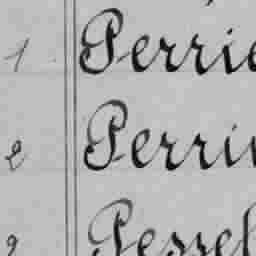 1 Perrie
2 Perri
Pessel